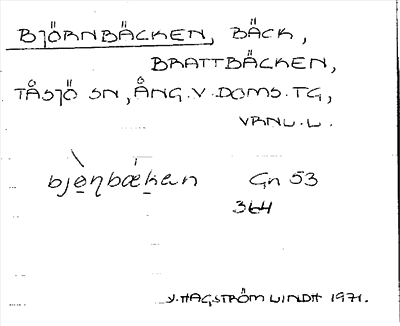 BJÖRNBÄCKEN, BÄCK,
BRATTBÄCKEN,
TÅSJÖ SN, ÅNG. V. DOMS. TG,
VRNL. L.
bjo̱ŋbæḵen Gn 53
364
V. HAGSTRÖM LINDH 1971.